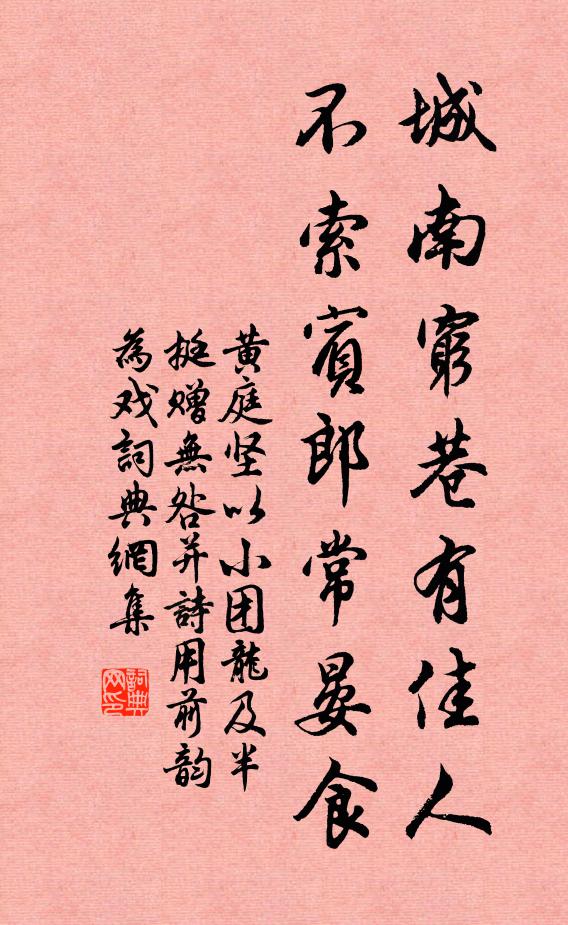 城南窮巷有佳人
不索賓郎常晏食
黄庭坚以小团龍及半
挺赠無咎并詩用前韵
為戏詞典網集
詞典网印